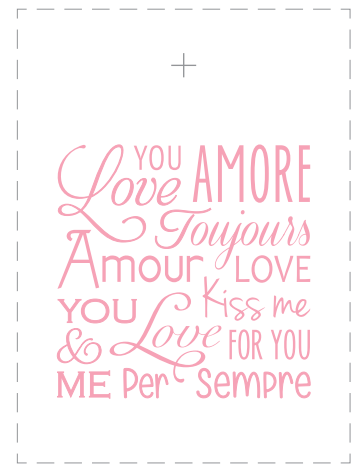 Love YOU AMORE
Toujours
Amour LOVE
YOU Kiss me
& Love FOR YOU
ME Per Sempre